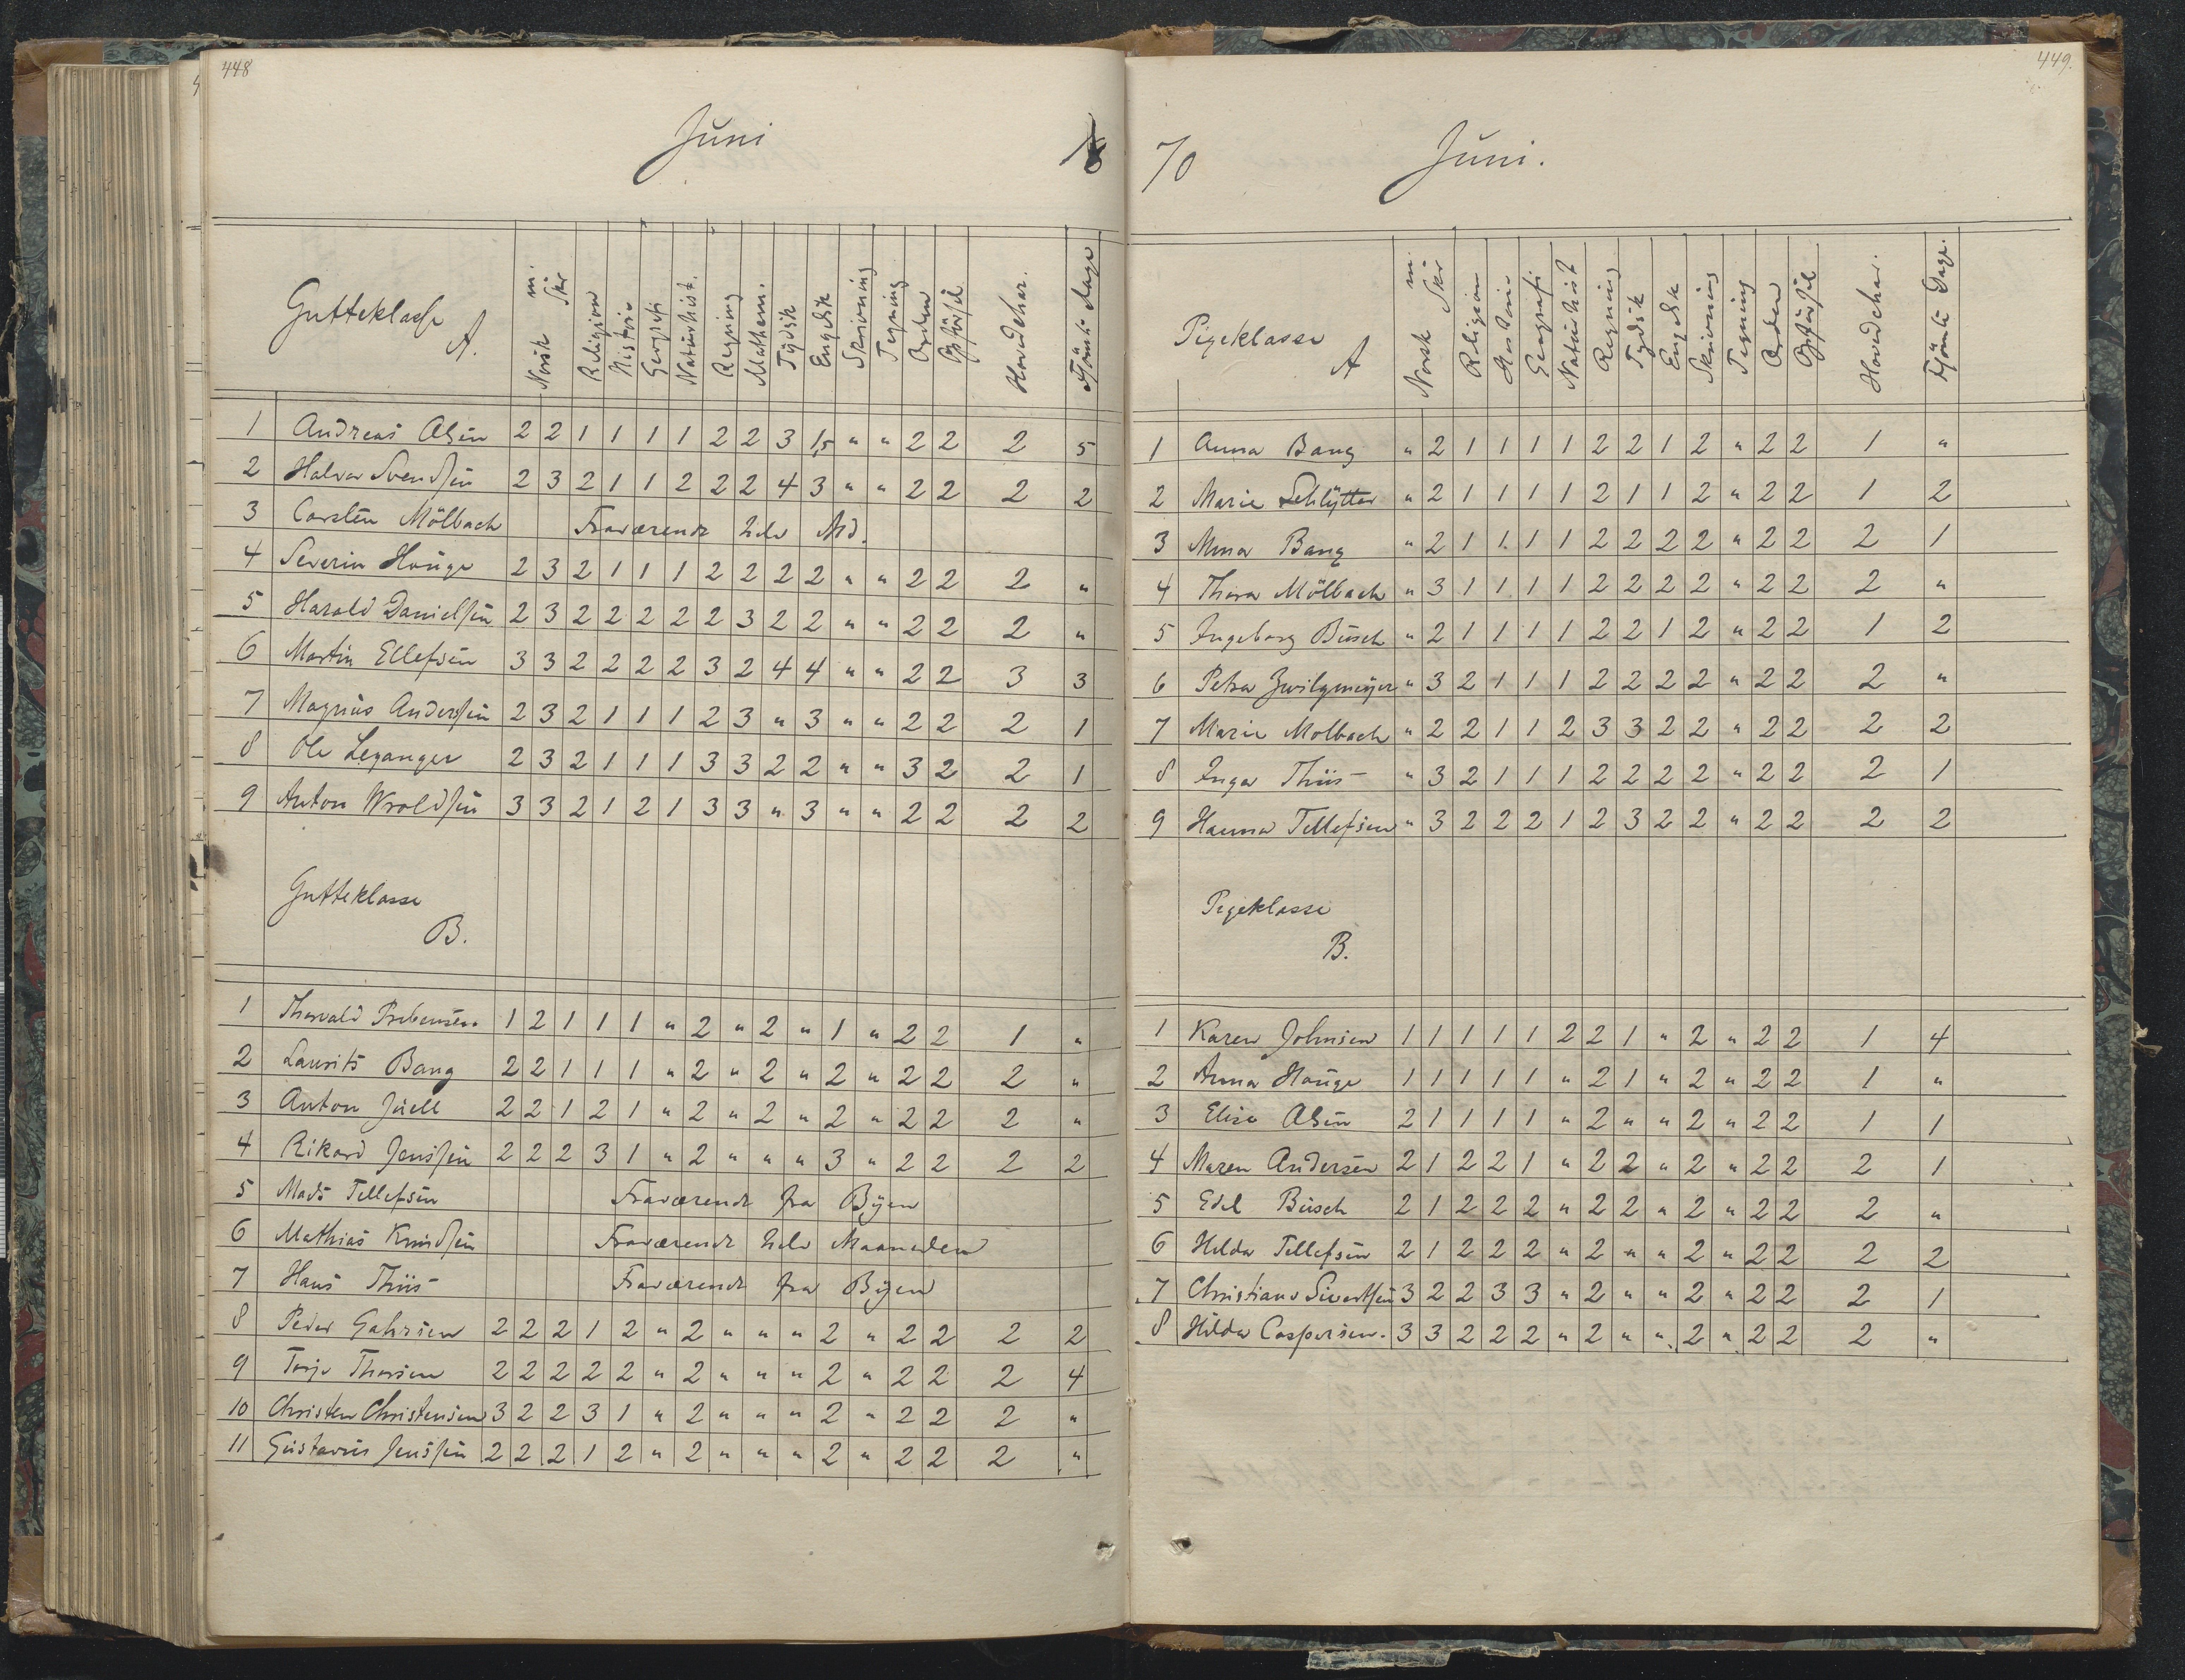 448
Juni
Gutteklasse
A.
Norsk m. Skr Religion Historie Geografi Naturhist. Regning Mathem. Tydsk Engelsk Skrivning Tegning Orden Opførsel Hovedchar. Forsømte Dage
1 Andreas Olsen 2 2 1 1 1 1 2 2 3 1,5 " " 2 2 2 5
2 Halvor Svendsen 2 3 2 1 1 2 2 2 4 3 " " 2 2 2 2
3 Carsten Mölbach Fraværende hele Md.
4 Severin Houge 2 3 2 1 1 1 2 2 2 2 " " 2 2 2 "
5 Harald Danielsen 2 3 2 2 2 2 2 3 2 2 " " 2 2 2 "
6 Martin Ellefsen 3 3 2 2 2 2 3 2 4 4 " " 2 2 3 3
7 Magnus Andersen 2 3 2 1 1 1 2 3 " 3 " " 2 2 2 1
8 Ole Leganger 2 3 2 1 1 1 3 3 2 2 " " 3 2 2 1
9 Anton Wroldsen 3 3 2 1 2 1 3 3 " 3 " " 2 2 2 2
Gutteklasse
B.
1 Thorvald Prebensen 1 2 1 1 1 " 2 " 2 " 1 " 2 2 1 "
2 Laurits Bang 2 2 1 1 1 " 2 " 2 " 2 " 2 2 2 "
3 Anton Juell 2 2 1 2 1 " 2 " 2 " 2 " 2 2 2 "
4 Rikard Jenssen 2 2 2 3 1 " 2 " " " 3 " 2 2 2 2
5 Mads Tellefsen Fraværende fra Byen
6 Mathias Knudsen Fraværende hele Maaneden
7 Hans Thiis Fraværende fra Byen
8 Peder Gahrsen 2 2 2 1 2 " 2 " " " 2 " 2 2 2 2
9 Terje Thorsen 2 2 2 2 2 " 2 " " " 2 " 2 2 2 4
10 Christen Christensen 3 2 2 3 1 " 2 " " " 2 " 2 2 2 "
11 Gustavus Jenssen 2 2 2 1 2 " 2 " " " 2 " 2 2 2 "
449.
18 70
Juni.
Pigeklasse
A
Norsk m. Skr Religion Historie Geografi Naturhist Regning Tydsk Engelsk Skrivning Tegning Orden Opførsel Hovedchar. Forsømte Dage.
1 Anna Bang " 2 1 1 1 1 2 2 1 2 " 2 2 1 "
2 Marie Schlytter " 2 1 1 1 1 2 1 1 2 " 2 2 1 2
3 Mina Bang " 2 1 1 1 1 2 2 2 2 " 2 2 2 1
4 Thora Mölbach " 3 1 1 1 1 2 2 2 2 " 2 2 2 "
5 Ingeborg Busch " 2 1 1 1 1 2 2 1 2 " 2 2 1 2
6 Petra Zwilgmeyer " 3 2 1 1 1 2 2 2 2 " 2 2 2 "
7 Marie Molbach " 2 2 1 1 2 3 3 2 2 " 2 2 2 2
8 Inga Thiis " 3 2 1 1 1 2 2 2 2 " 2 2 2 1
9 Hanna Tellefsen " 3 2 2 2 1 2 3 2 2 " 2 2 2 2
Pigeklasse
B.
1 Karen Johnsen 1 1 1 1 1 2 2 1 " 2 " 2 2 1 4
2 Anna Houge 1 1 1 1 1 " 2 1 " 2 " 2 2 1 "
3 Elise Olsen 2 1 1 1 1 " 2 " " 2 " 2 2 1 1
4 Maren Andersen 2 1 2 2 1 " 2 2 " 2 " 2 2 2 1
5 Edel Busch 2 1 2 2 2 " 2 2 " 2 " 2 2 2 "
6 Hilda Tellefsen 2 1 2 2 2 " 2 " " 2 " 2 2 2 2
7 Christiane Sivertsen 3 2 2 3 3 " 2 " " 2 " 2 2 2 1
8 Hilda Caspersen. 3 3 2 2 2 " 2 " " 2 " 2 2 2 "